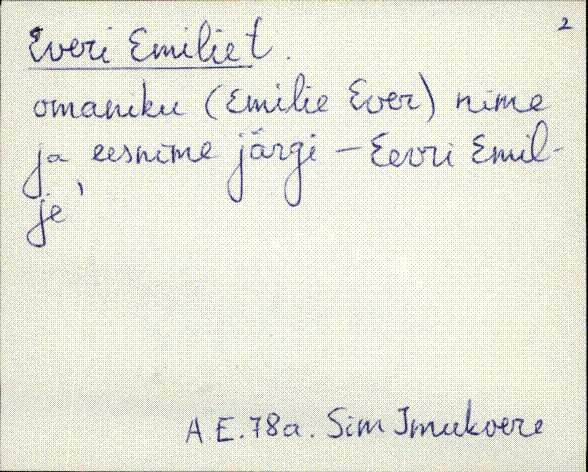 2
Everi Emilie t.
omaniku (Emilie Ever) nime
ja eesnime järgi – Eevri Emil-
je,
A.E. 78a. Sim Imukvere